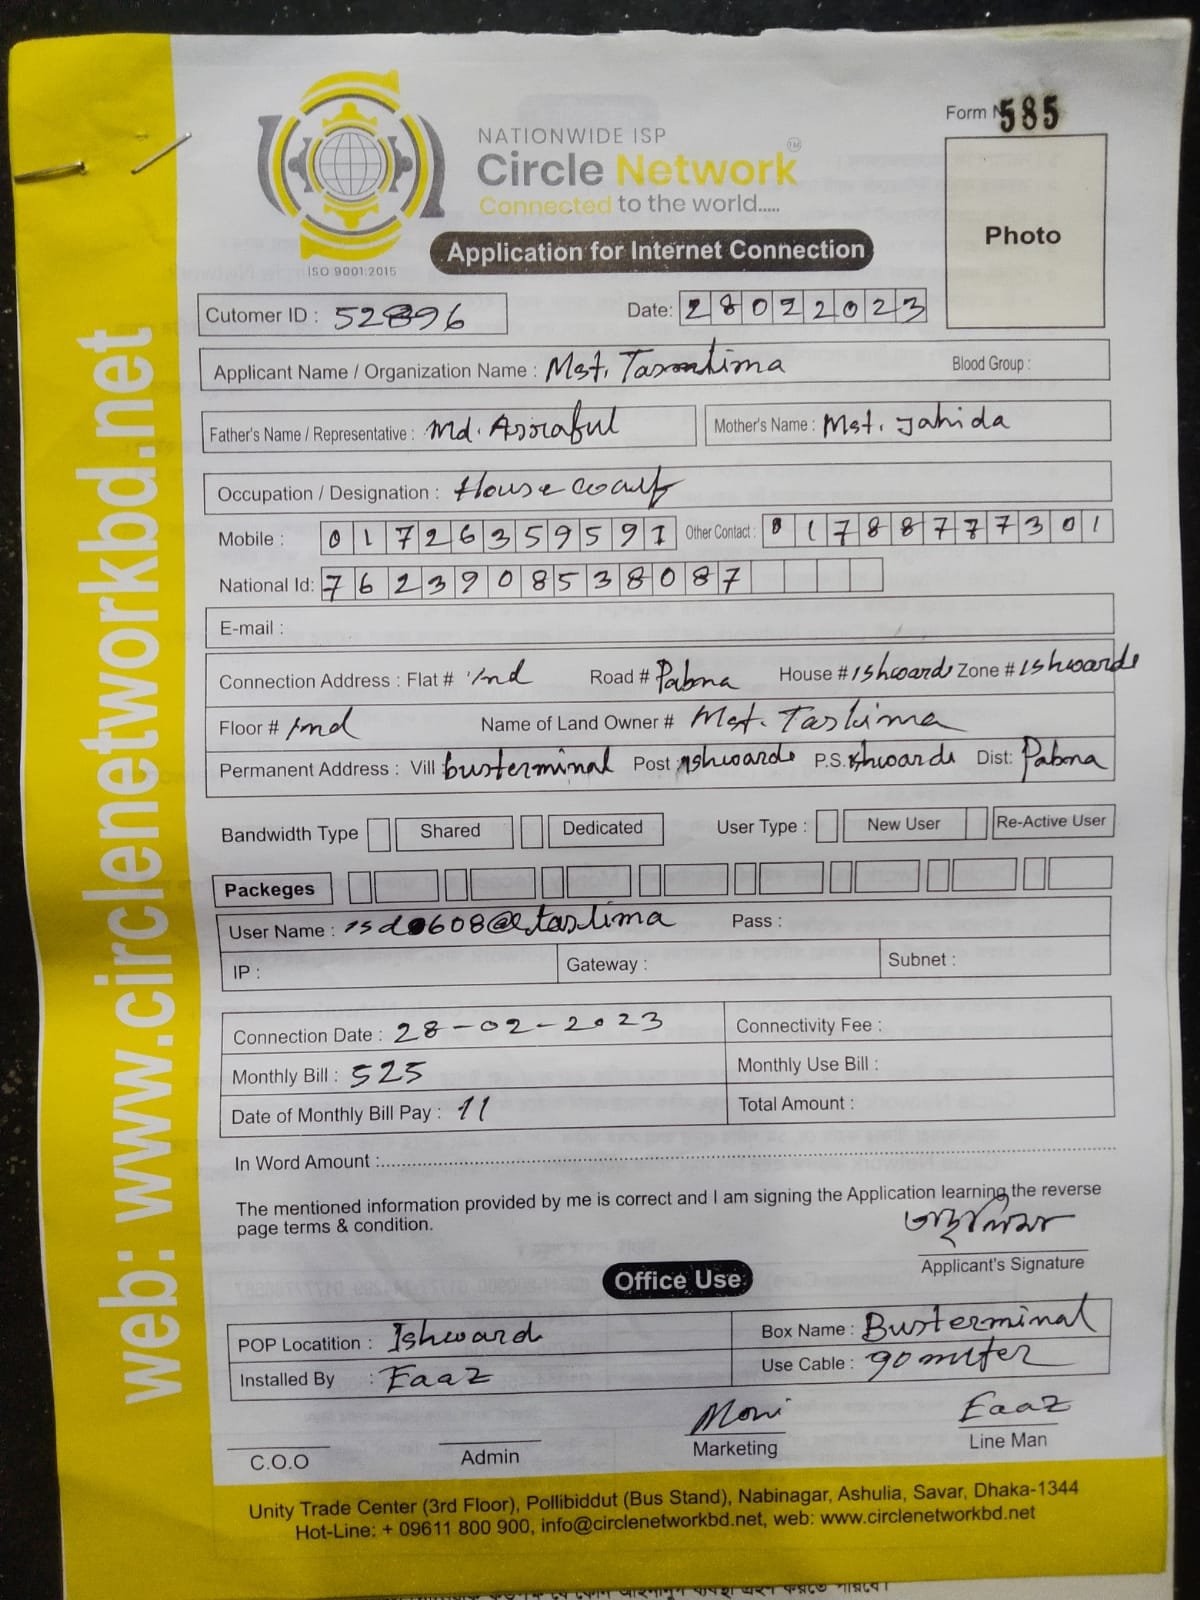 Form N 585
NATIONWIDE ISP
Circle Network TM
Connected to the world.....
ISO 9001:2015
Application for Internet Connection
Photo
Cutomer ID : 52896
Date: 28022023
Applicant Name / Organization Name : Mst. Tasmtima
Blood Group :
Father's Name / Representative : Md. Asoraful
Mother's Name : Mst. Jahida
Occupation / Designation : House
Mobile : 01726359591
Other Contact : 01788777301
National Id: 7623908538087
E-mail :
Connection Address : Flat # Road # Pabna House # Ishwardi Zone # Ishwardi
Floor # Name of Land Owner # Mst. Taslima
Permanent Address : Vill busterminal Post Ishwardi P.S. Ishwardi Dist: Pabna
Bandwidth Type Shared Dedicated User Type : New User Re-Active User
Packeges
User Name : Pass :
IP : Gateway : Subnet :
Connection Date : 28-02-2023
Connectivity Fee :
Monthly Bill : 525
Monthly Use Bill :
Date of Monthly Bill Pay : 11
Total Amount :
In Word Amount :
The mentioned information provided by me is correct and I am signing the Application learning the reverse
page terms & condition.
Applicant's Signature
Office Use
POP Locatition : Ishward
Box Name : Busterminal
Installed By : Eaaz
Use Cable : 90 miter
Moni
Eaaz
C.O.O Admin Marketing Line Man
Unity Trade Center (3rd Floor), Pollibiddut (Bus Stand), Nabinagar, Ashulia, Savar, Dhaka-1344
Hot-Line: + 09611 800 900, info@circlenetworkbd.net, web: www.circlenetworkbd.net
web: www.circlenetworkbd.net